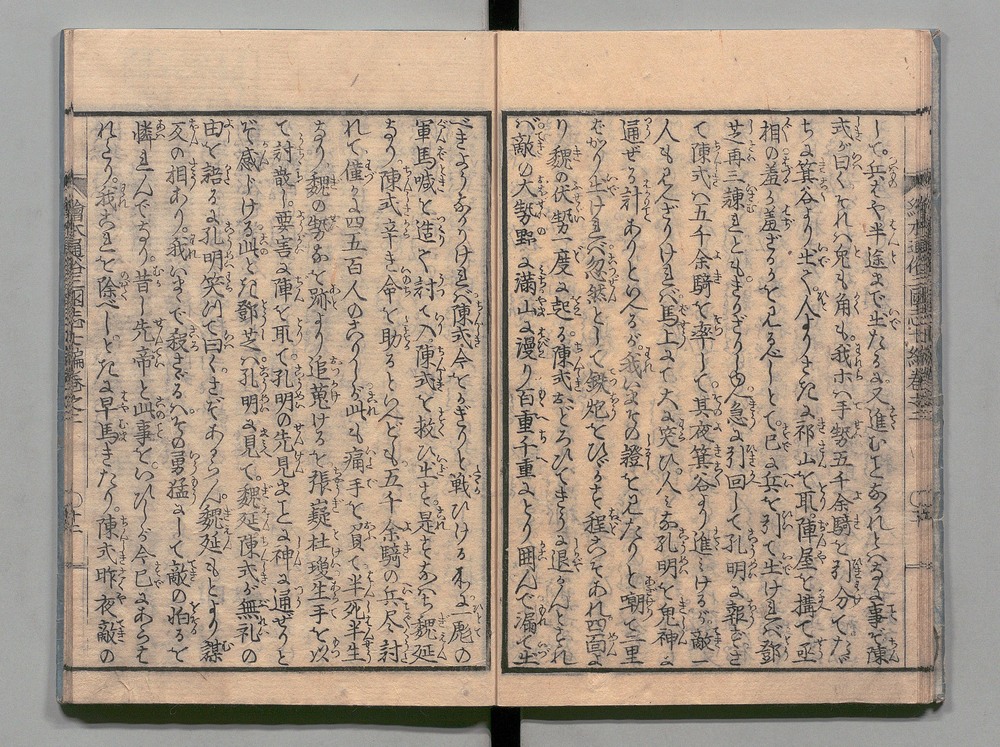 して。兵はや半途まで出たるに又進むことなかれとはなに事ぞ陳
式が曰くそれハ兎も角も。我ホハ手勢五千余騎を引分てたゞち
に箕谷より出て人よりさきに祁山を取陣屋を搆て亟
相の羞るか羞ざるかを見る心しとて已に兵を引て出けれバ鄧
芝再三諫れどもきかざりしゆへ急に引回して孔明に報ぜしむさ
て陳式ハ五千余騎を率して其夜箕谷より進ミけるが敵一
人も見へざりけれバ馬上にて大に笑ひ人ミな孔明を鬼神に
通ぜる計ありといへるが我いまその證を見たりと嘲て二里
ばかり出けれバ忽然として鉄炮をひゞかせ程こそあれ四面よ
り魏の伏勢一度に起る陳式おどろひてきうに退かんとすれ
バ敵の大勢野に満山に漫り百重千重にとり囲んで漏て出
べきようなかりけれバ陳式今をかぎりと戦ひける所に一彪の
軍馬喊を造て討て入陳式を救ひ出す是すなハち魏延
なり陳式辛き命を助るといへども五千余騎の兵尽討
れて僅に四五百人のこりしが此も痛手を負て半死半生
なり魏の勢なを跡より追蒐けるを張嶷杜瓊生手を以
て討散し。要害に陣を取て孔明の先見まことに神に通ぜりと
ぞ感じける此とき鄧芝ハ孔明に見て。魏延陳式が無礼の
由を語るに孔明笑つて曰くさぞあらん魏延もとより謀
反の相あり。我いまで殺さゞるハその勇猛にして敵の怕るを
憐れんでなり。昔し先帝と此事をいひしが今已にあらはせ
れたり。我これを除べしとき早馬きたり。陳式昨夜敵の